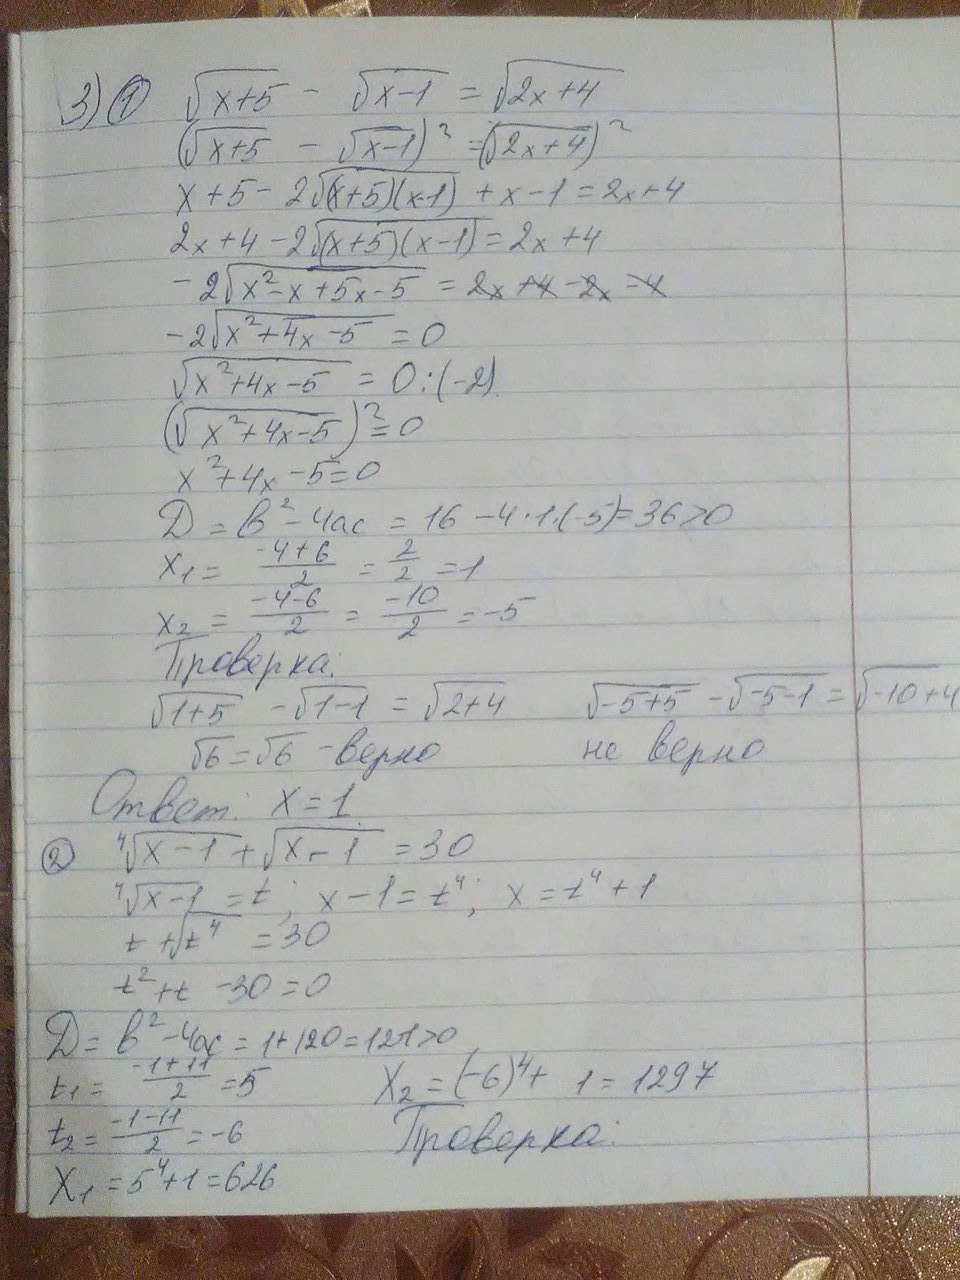 3) ① √(x+5) - √(x-1) = √(2x+4)
(√(x+5) - √(x-1))² = (√(2x+4))²
x+5 - 2√((x+5)(x-1)) + x-1 = 2x+4
2x+4-2√((x+5)(x-1)) = 2x+4
-2√(x²-x+5x-5) = 2x+4-2x-4
-2√(x²+4x-5) = 0
√(x²+4x-5) = 0:(-2)
(√(x²+4x-5))² = 0
x²+4x-5=0
D = b²-4ac = 16-4·1·(-5)=36>0
x₁ = (-4+6)/2 = 2/2 = 1
x₂ = (-4-6)/2 = -10/2 = -5
Проверка:
√(1+5) - √(1-1) = √(2+4) √(-5+5) - √(-5-1) = √(-10+4)
√6 = √6 - верно не верно
Ответ: x=1
② ⁴√(x-1) + √(x-1) = 30
⁴√(x-1) = t; x-1 = t⁴; x = t⁴+1
t+√(t⁴) = 30
t²+t-30=0
D = b²-4ac = 1+120=121>0
t₁ = (-1+11)/2 = 5 x₂ = (-6)⁴+1=1297
t₂ = (-1-11)/2 = -6 Проверка:
x₁ = 5⁴+1=626